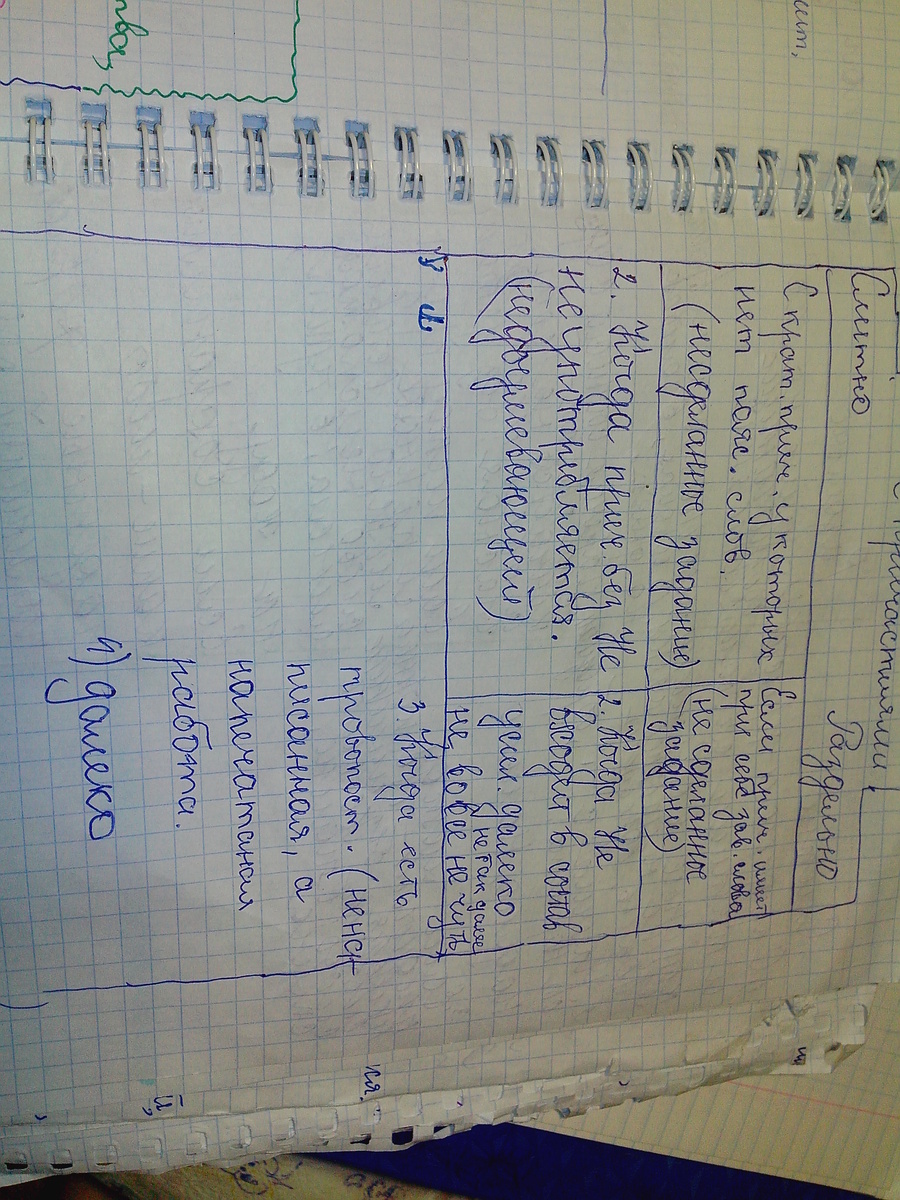 с причастиями
Слитно
Раздельно
С крат. прич. у которых
нет пояс. слов.
(несделанное задание)
Если прич. имеет
при себе зав. слова
(не сделанное
задание)
2. Когда прич. без Не
не употребляется.
(недоумевающий)
2. Когда Не
входит в состав
усил. далеко
не, вовсе не чуть
3. Когда есть
тровопост. (ненап
писанная, а
напечатаная
работа.
4) далеко